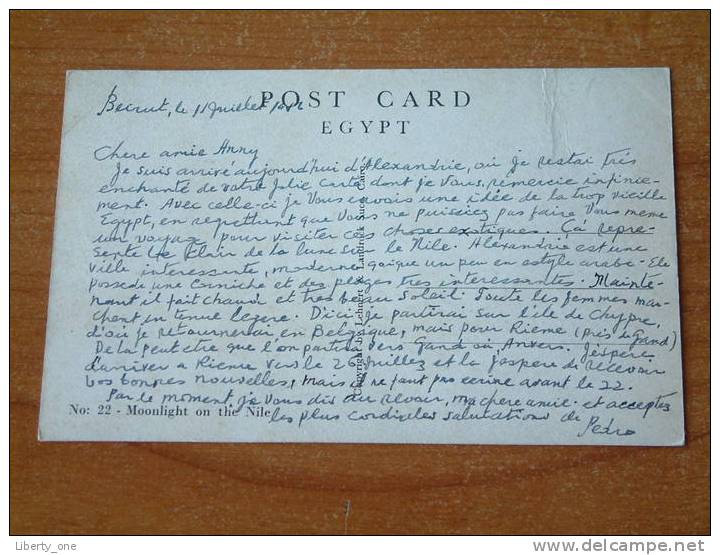 POST CARD
EGYPT
Beirut, le 11 Juillet
Chere amie Anny
Je suis arrivé aujourd'hui d'Alexandrie, où je restai très
enchanté de votre Jolie carte dont je Vous remercie infinie-
ment. Avec celle-ci je Vous envois une idée de la trop vieille
Egypt, en regrettent que Vous ne puissiez pas faire Vous meme
un voyax pour visiter ces choses exotiques. Ça repre-
sente le Clair de la lune sur le Nile. Alexandrie est une
ville interessante, moderne, un peu en estyle arabe. Ele
possede une Corniche et des plages tres interessantes. Mainte-
nant il fait chaud et tres beau Soleil. Toute les femmes mar-
chent en tenue legere. D'ici je partirai sur l'ile de Chypre,
d'où je retournerai en Belgique, mais pour Rieme (près de Gand)
De la peut etre que l'on partira vers Gand où Anvers. J'espere
d'arriver a Rieme vers le 20 Juillet et la j'espere de recevoir
vos bonnes nouvelles, mais il ne faut pas ecrire avant le 22.
Par le moment, je Vous dis au revoir, ma chere amie et acceptez
les plus cordieles salutations de
Pedro
No: 22 - Moonlight on the Nile
Copyright by Lehnert & Landrock Succ. Cairo
Liberty_one
www.delcampe.net